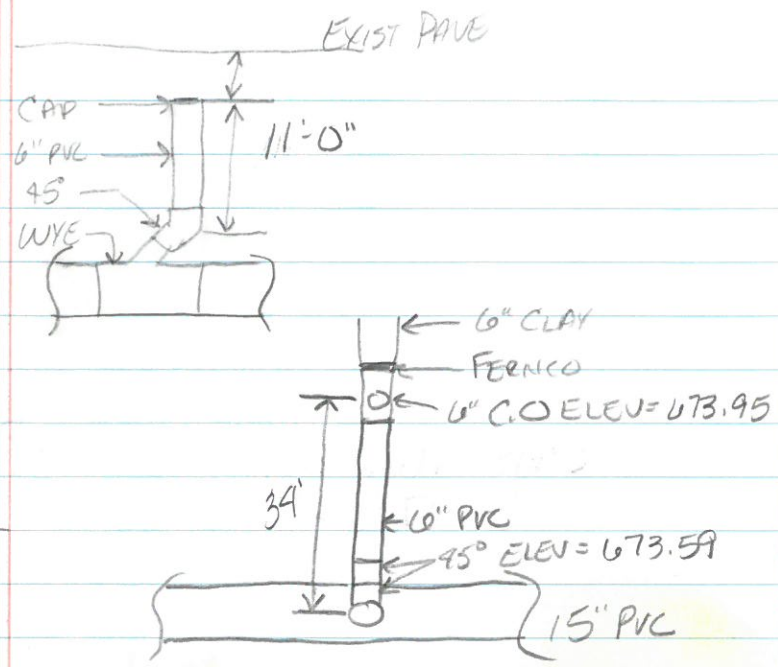 EXIST PAVE
CAP
6" PVC
45°
WYE
11'-0"
6" CLAY
FERNCO
6" C.O ELEV=673.95
34'
6" PVC
45° ELEV=673.59
15" PVC